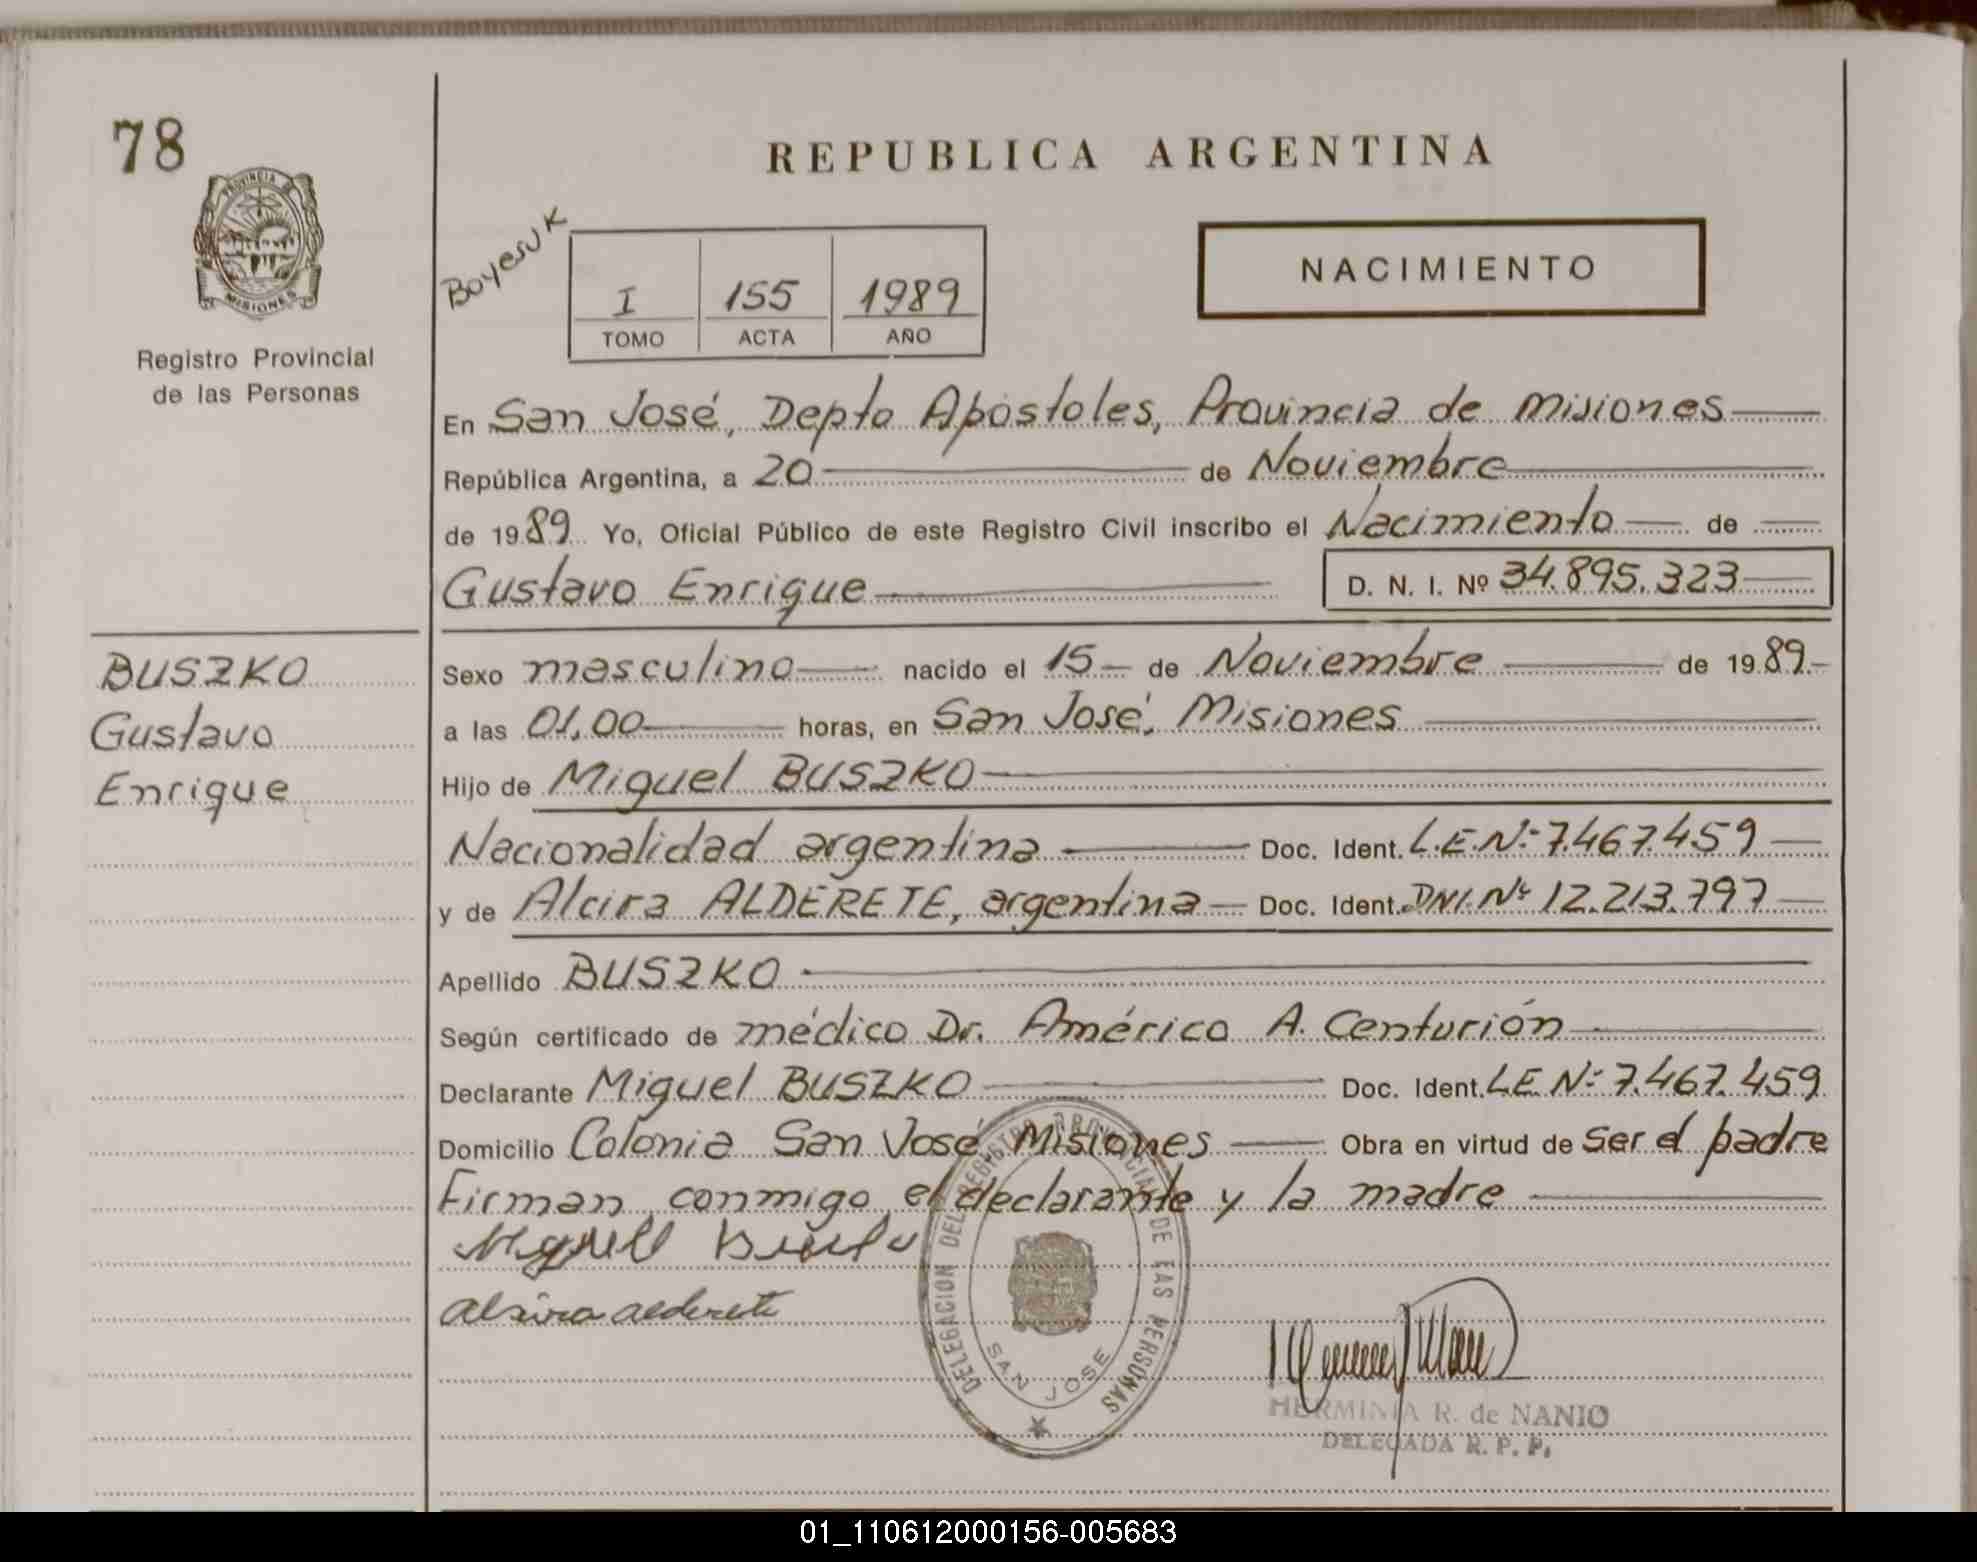 78
REPUBLICA ARGENTINA
PROVINCIA DE
MISIONES
Registro Provincial
de las Personas
Boyesuk
I 155 1989
TOMO ACTA AÑO
NACIMIENTO
En San José, Depto Apóstoles, Provincia de Misiones
República Argentina, a 20 de Noviembre
de 1989 Yo, Oficial Público de este Registro Civil inscribo el Nacimiento de
Gustavo Enrique D. N. I. Nº 34.895.323
BUSZKO
Gustavo
Enrique
Sexo masculino nacido el 15 de Noviembre de 1989.
a las 01,00 horas, en San José, Misiones
Hijo de Miguel BUSZKO
Nacionalidad argentina Doc. Ident. L.E.Nº 7.467.459
y de Alcira ALDERETE, argentina Doc. Ident. DNI.Nº 12.213.797
Apellido BUSZKO
Según certificado de médico Dr. Américo A. Centurión
Declarante Miguel BUSZKO Doc. Ident. L.E. Nº 7.467.459
Domicilio Colonia San José, Misiones Obra en virtud de ser el padre
Firman conmigo el declarante y la madre
Alsira alderete
DELEGACION DEL REGISTRO PROVINCIAL DE LAS PERSONAS
SAN JOSE
HERMINIA R. de NANIO
DELEGADA R. P. P.
01_110612000156-005683